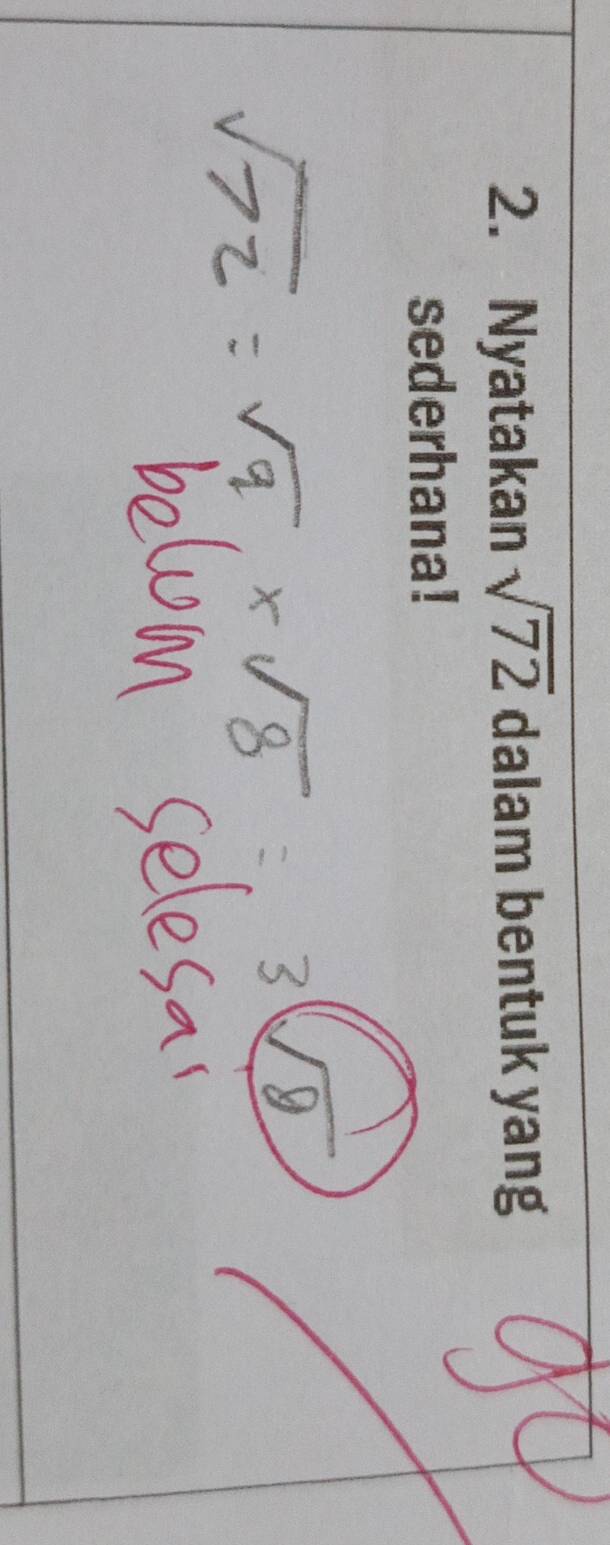 2. Nyatakan √72 dalam bentuk yang
sederhana!
√72 = √9 × √8 = 3√8
belum selesai